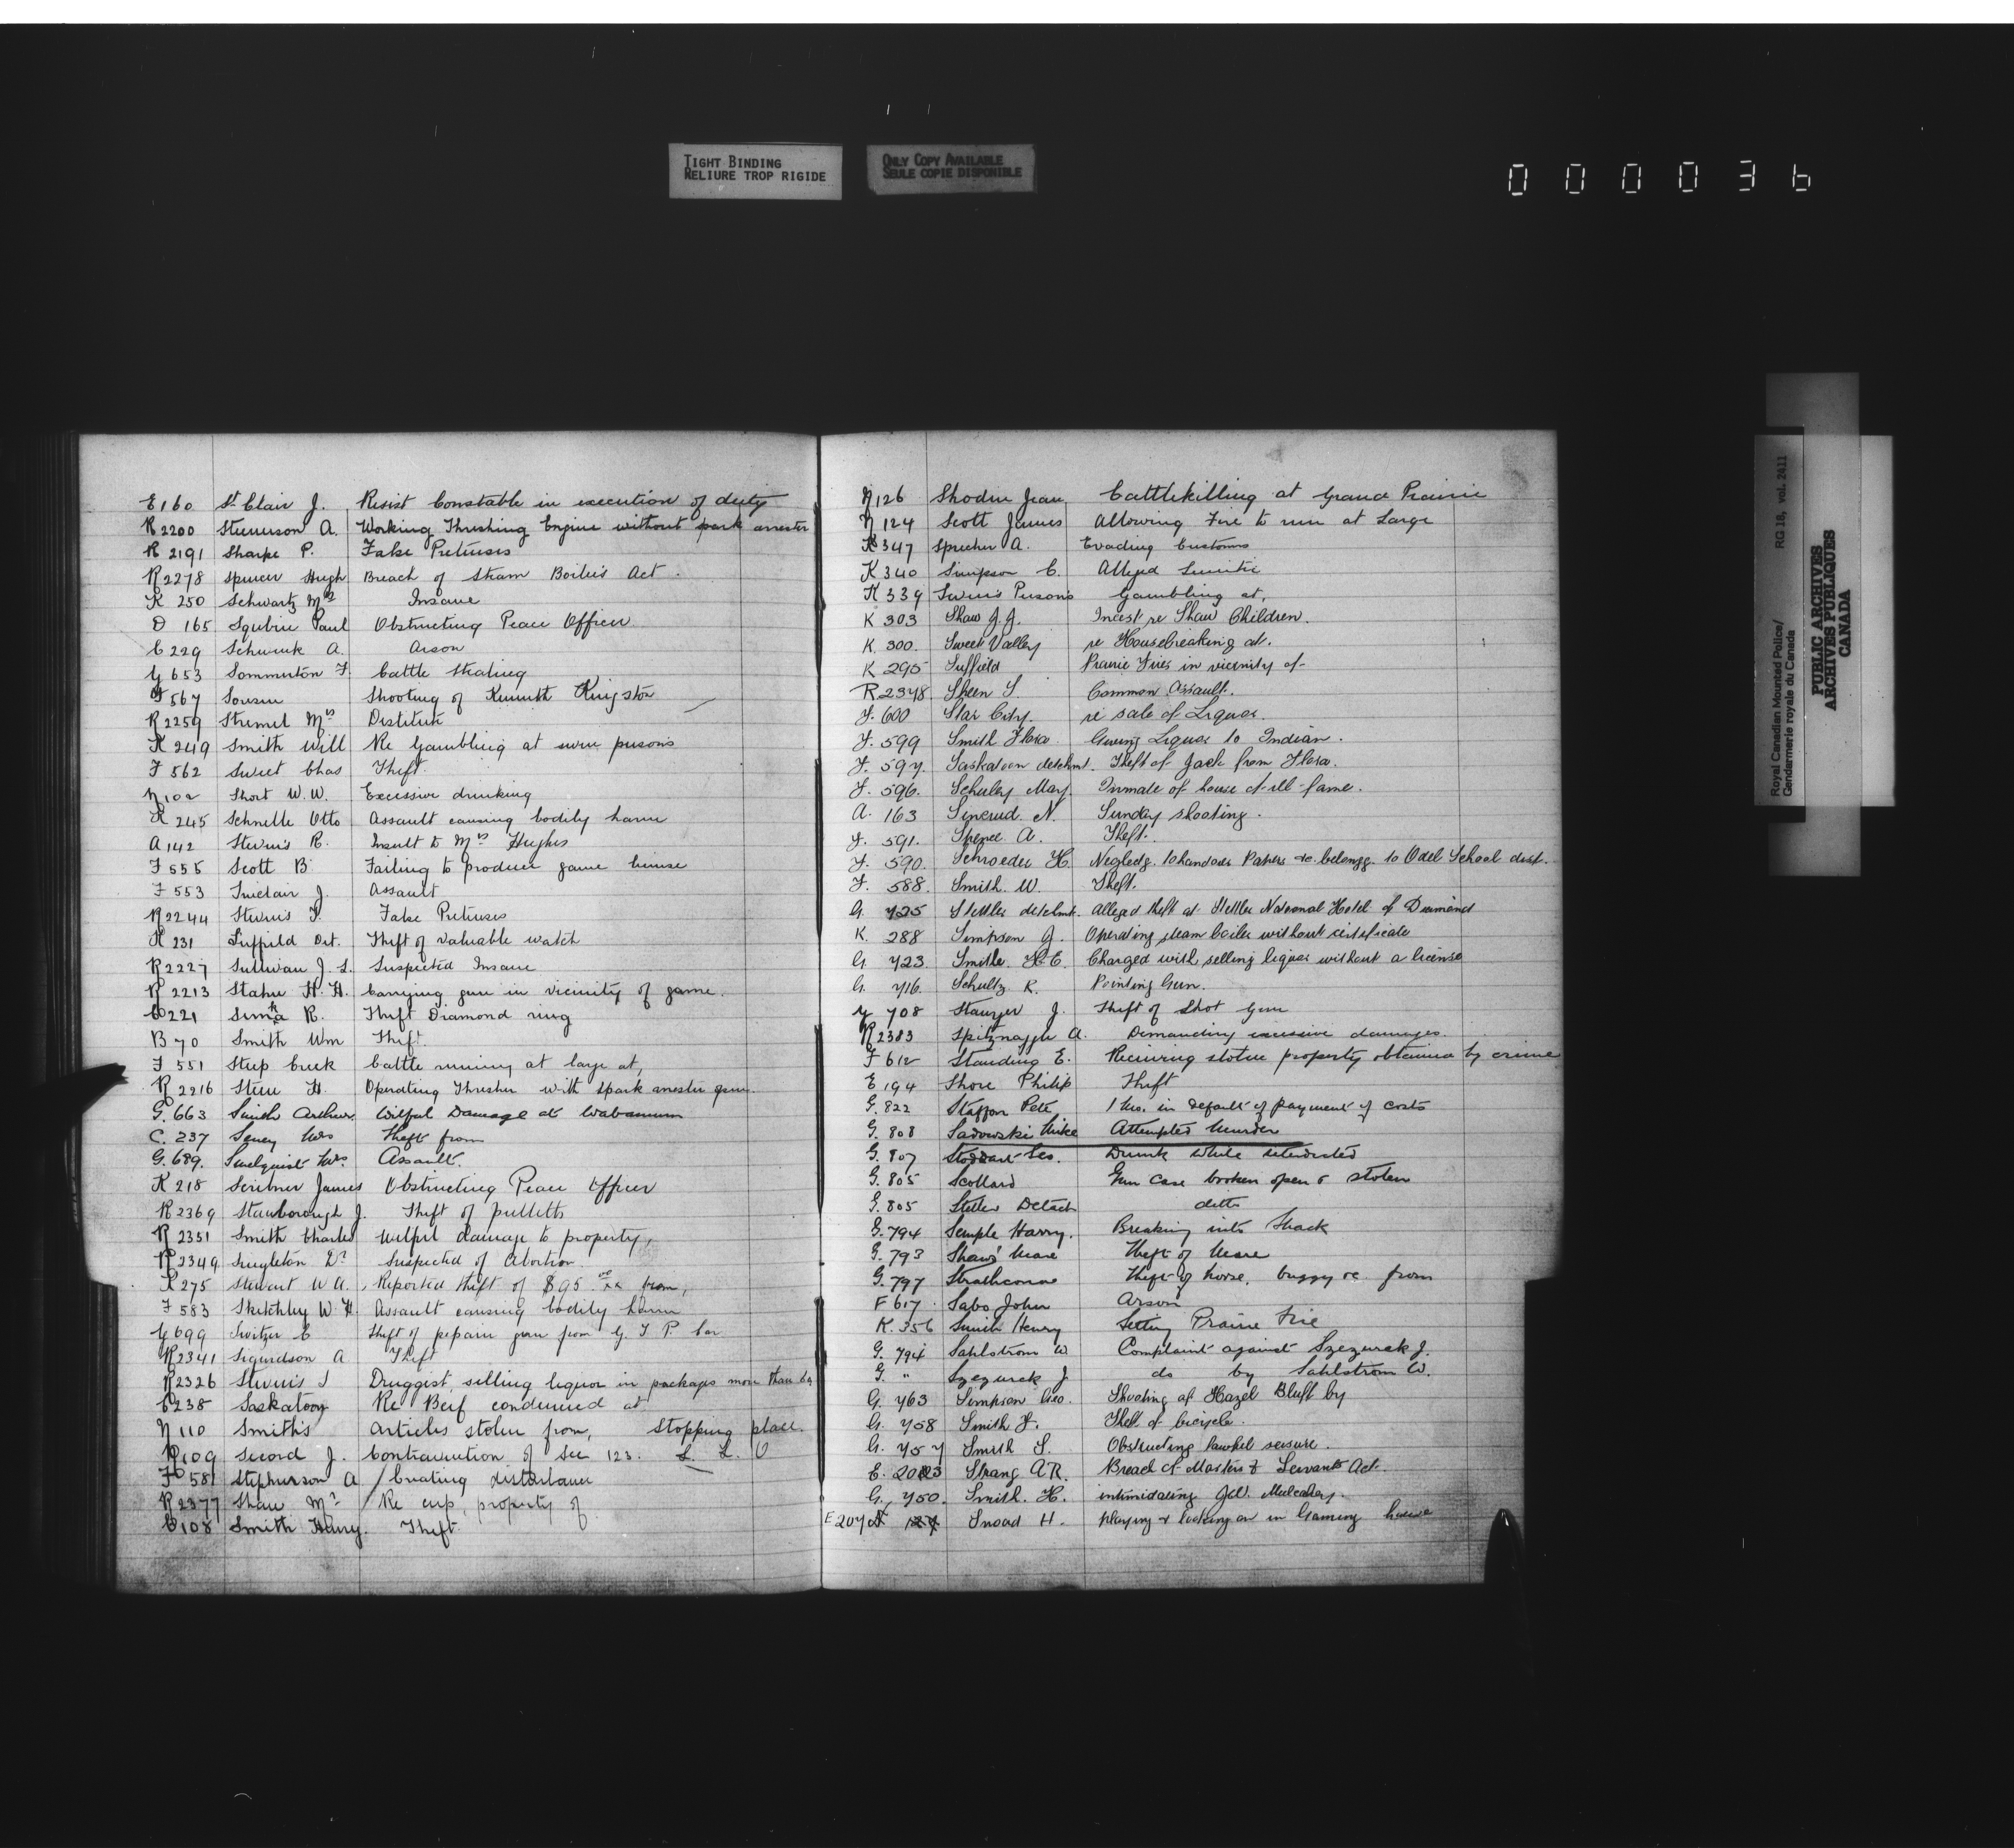 TIGHT BINDING
RELIURE TROP RIGIDE
ONLY COPY AVAILABLE
SEULE COPIE DISPONIBLE
000036
E 160 St Clair J. Resist Constable in execution of duty
R 2200 Stevenson A. Working Thrishing Engine without spark arrester
R 2191 Sharpe P. False Pretenses
R 2278 Spencer Hugh Breach of Steam Boilers Act.
K 250 Schwartz Mrs Insane
D 165 Paul Obstructing Peace Officer
C 229 Schwenk A. Arson
G 653 Sommerton F. Cattle Stealing
F 567 Shooting of Kenneth Kingston
R 2259 Mrs Destitute
K 249 Smith Will Re Gambling at seven persons
F 562 Sweet Chas Theft.
N 102 Short W. W. Excessive drinking
K 245 Schnelle Otto Assault causing bodily harm
A 142 Stevens R. Insult to Mrs Hughes
F 555 Scott B. Failing to produce game license
F 553 Sinclair J. Assault
R 2244 Stevens F. False Pretenses
K 231 Suffield Det. Theft of valuable watch
R 2227 Sullivan J. L. Suspected Insane
R 2213 Stahu H. H. Carrying gun in vicinity of game.
C 221 R. Theft Diamond ring
B 70 Smith Wm Theft.
F 551 Steep Creek Cattle running at large at,
R 2216 H. Operating Thresher with spark arrester open.
G. 663 Smith Arthur. Wilful Damage at Wabamum
C. 237 Mrs Theft from
G. 689. Mrs. Assault.
K 218 Scribner James Obstructing Peace Officer
R 2369 Stainborough J. Theft of pulletts
R 2351 Smith Charles Wilful damage to property,
R 2349 Singleton Dr Suspected of Abortion
K 275 Stewart W A. Reported theft of $95 oo/xx from,
F 583 Sketchley W. H. Assault causing bodily harm
G 699 Switzer C Theft of gun from G. T P. Car
R 2341 Sigurdson A Theft
R 2326 Stevens J Druggist, selling liquor in packages more than
C 238 Saskatoon Re Beef condemned at
N 110 Smith's Articles stolen from, Stopping place.
109 Secord J. Contravention of Sec 123. L. L. O
F 581 Stephenson A Creating disturbance
R 2377 Shaw Mr Re cup, property of
108 Smith Harry. Theft.
N 126 Shodin Jean Cattlekilling at Grand Prairie
N 124 Scott James Allowing Fire to run at Large
K 347 Sprecher A. Evading Customs
K 340 Simpson C. Alleged Lunitic
K 339 Seven Persons Gambling at,
K 303 Shaw J. J. Incest re Shaw Children.
K. 300. Sweet Valley re Housebreaking at.
K 295 Suffield Prairie Fires in vicinity of
R 2378 Sheen S. Common Assault.
F. 600 Star City. re sale of Liquor.
F. 599 Smith Flora Giving Liquor to Indian.
F. 597. Saskatoon detchmt. Theft of Jack from Flora.
F. 596. Schuley May Inmate of house of ill-fame.
A. 163 N. Sunday shooting.
F. 591. Spence A. Theft.
F. 590. Schroeder H. Neglectg. to handover Papers &c belongg. to Odel School dist.
F. 588. Smith. W. Theft.
G. 725 Stettler detchmt. Alleged theft at Stettler National Hotel of Diamond
K. 288 Simpson J. Operating steam boiler without certificate
G. 723. Smith H. E. Charged with selling liquor without a license
G. 716. Schultz R. Pointing Gun.
G 708 J. Theft of Shot Gun
R 2383 Spitznaggle A. Demanding excessive damages.
F 612 Standing E. Receiving stolen property obtained by crime
E 194 Shore Philip Theft
G. 822 Pete 1 Mo. in default of payment of costs
G. 808 Sadowski Mike Attempted Murder
G. 807 Stoddart Drunk while interdicted
G. 805 Scollard Gun case broken open & stolen
G. 805 Stettler Detach ditto
G. 794 Semple Harry. Breaking into Shack
G. 793 Shaws' Mare Theft of Mare
G. 797 Strathcona Theft of horse, buggy &c from
F 617. Sabo John Arson
K. 356 Smith Henry Setting Prairie Fire
G. 794 Sahlstrom W Complaint against Szezurek J.
G. " Szezurek J. do by Sahlstrom W.
G. 763 Simpson Geo. Shooting at Hazel Bluff by
G. 758 Smith F. Theft of bicycle.
G. 757 Smith S. Obstructing lawful seisure.
E. 203 Strang A R. Breach of Masters & Servants Act.
G. 750. Smith. H. intimidating Mulcahey.
E 207 Snoad H. playing & looking on in Gaming house
Royal Canadian Mounted Police/
Gendarmerie royale du Canada
RG 18, vol. 2411
PUBLIC ARCHIVES
ARCHIVES PUBLIQUES
CANADA